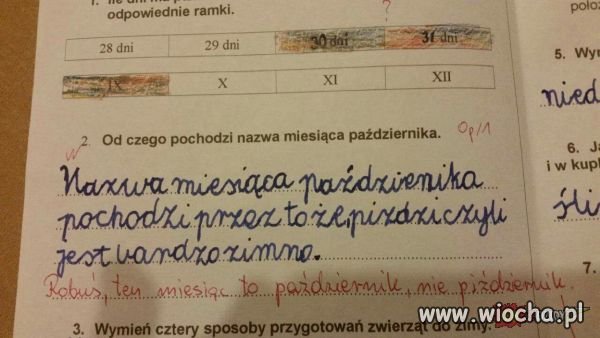 1. Ile dni ma
odpowiednie ramki.
?
28 dni 29 dni 30 dni 31 dni
IX X XI XII
2. Od czego pochodzi nazwa miesiąca października.
0p/1
Nazwa miesiąca paździenika
pochodzi przez to że, piździ czyli
jest bandzo zimno.
Robuś, ten miesiąc to październik, nie piździernik.
3. Wymień cztery sposoby przygotowań zwierząt do zimy.
5.
nied
6.
i w
śli
7.
www.wiocha.pl